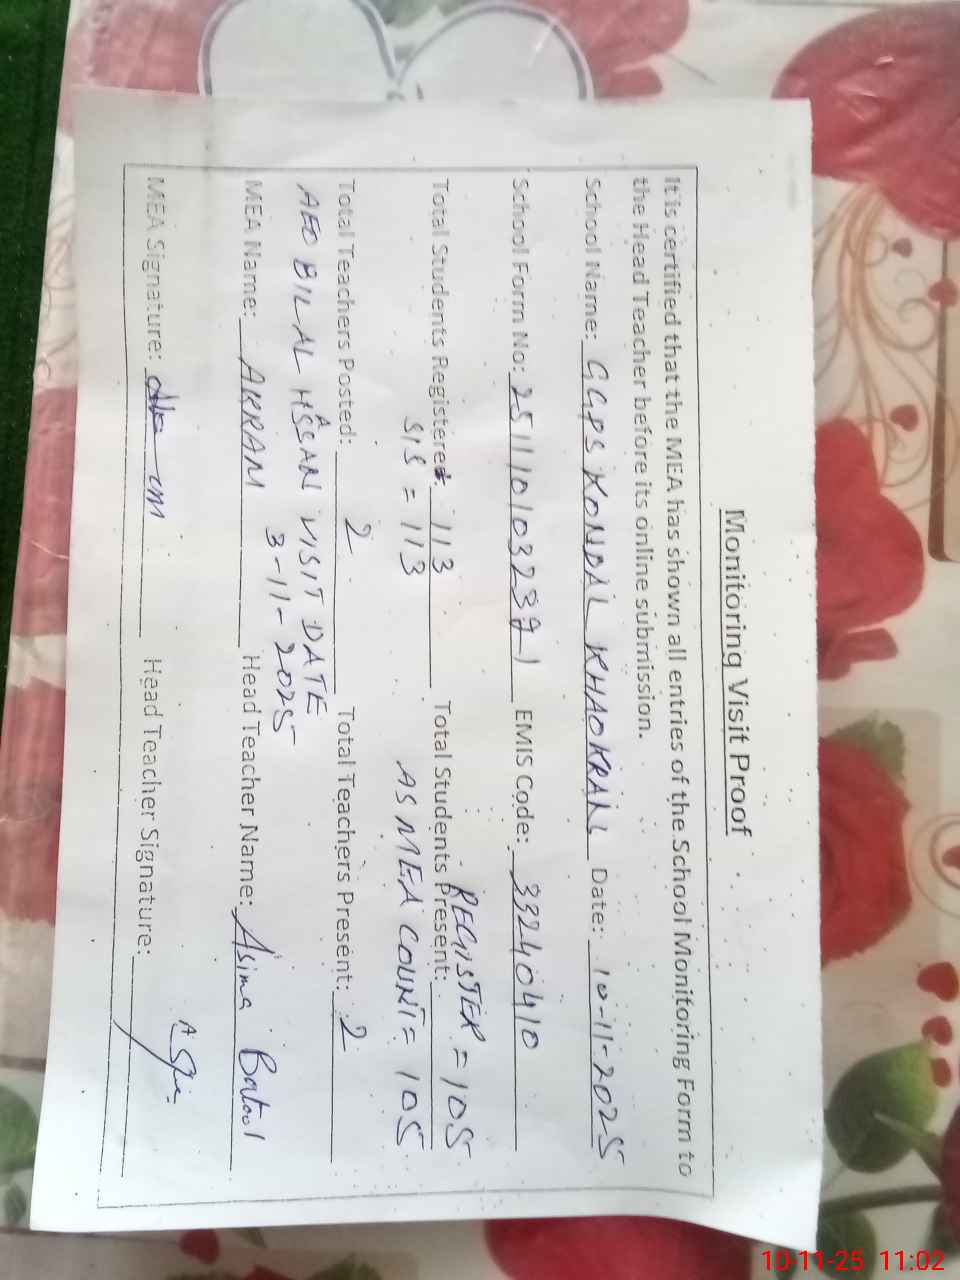 Monitoring Visit Proof
It is certified that the MEA has shown all entries of the School Monitoring Form to
the Head Teacher before its online submission.
School Name: GGPS KONDAL KHAOKRAL Date: 10-11-2025
School Form No: 2511101032371 EMIS Code: 33240410
REGISTER = 105
Total Students Registered: 113 Total Students Present:
SIS = 113 AS MEA COUNT = 105
Total Teachers Posted: 2 Total Teachers Present: 2
AEO BILAL HASSAN VISIT DATE
3-11-2025
MEA Name: AKRAM Head Teacher Name: Asima Batool
MEA Signature: Head Teacher Signature:
10-11-25 11:02